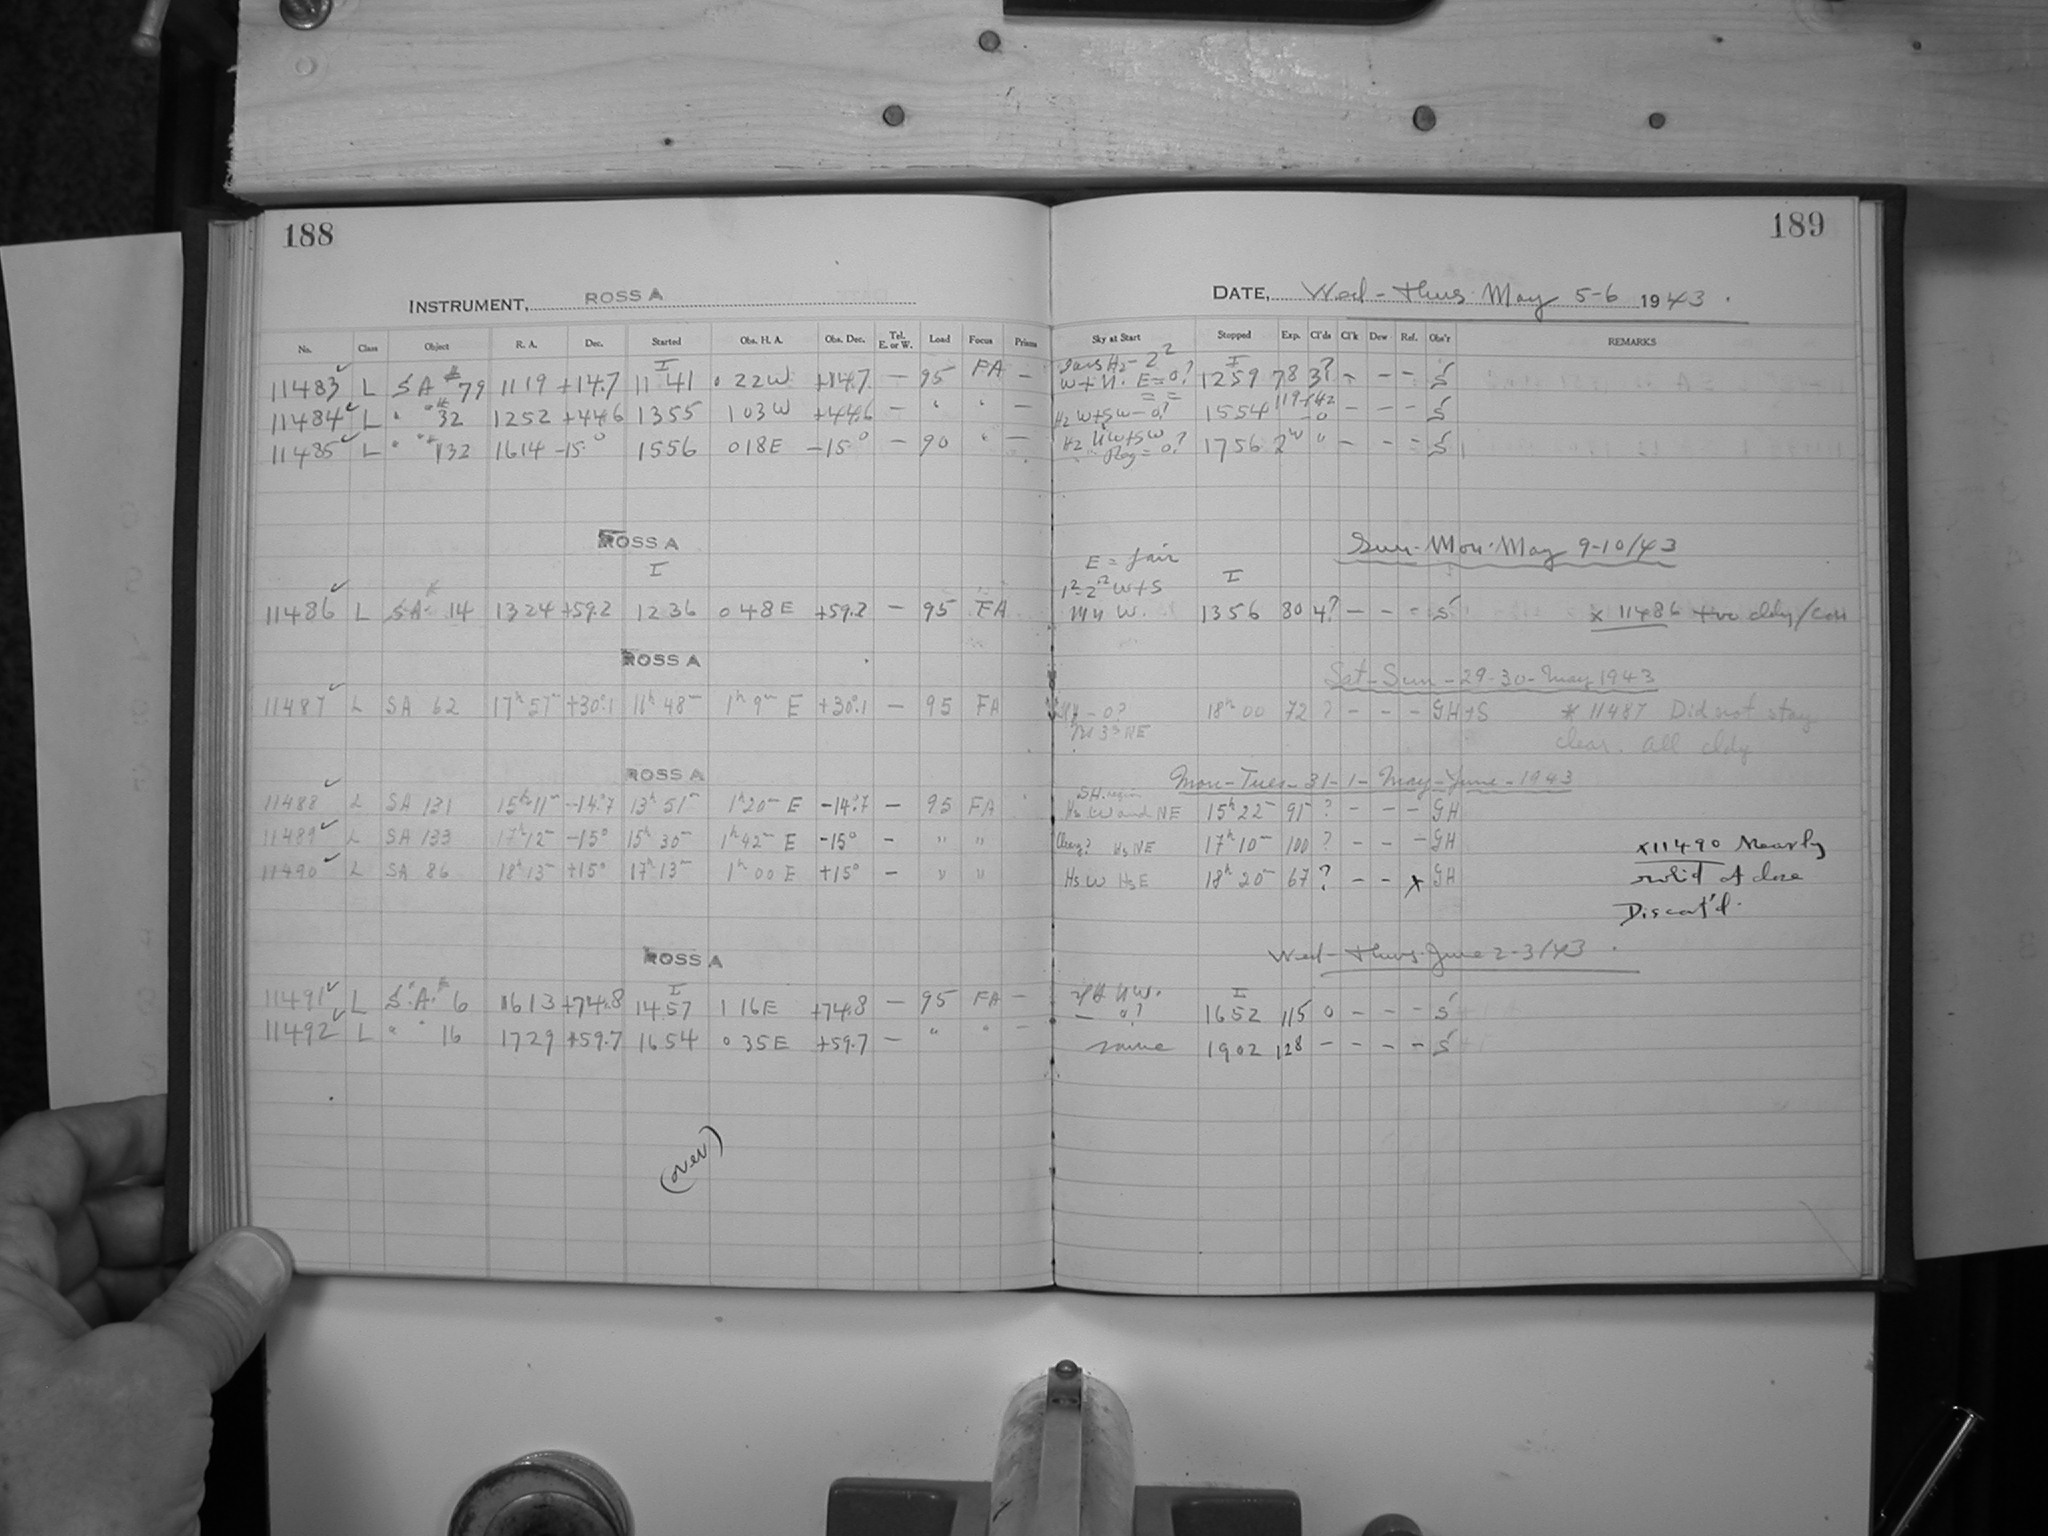 188
189
INSTRUMENT, ROSS A
DATE, Wed - Thus May 5-6 1943.
No. Class Object R. A. Dec. Started Obs. H. A. Obs. Dec. Tel. E. or W. Load Focus Prisms Sky at Start Stopped Exp. Cl'ds Cl'k Dew Ref. Obs'r REMARKS
I FA I
11483 L SA # 79 1119 +14.7 11 41 0 22W +14.7 — 95 — W+N. E=0? 1259 78 3? - - - S
11484 L " "# 32 1252 +44.6 1355 1 03 W +44.6 — " " — Hz W+SW-0? 1554 - - - S
11485 L " "# 132 1614 -15° 1556 018E -15° — 90 " — Hz NW+SW 1756 " - - = S
ROSS A
Sun-Mon. May 9-10/43
I E = fair I
1²-2² W+S
11486 L SA # 14 1324 +59.2 1236 0 48 E +59.2 — 95 FA W. 1356 80 4? - - - S x 11486 cldy/
ROSS A
Sat-Sun-29-30-May 1943
11487 L SA 62 17h 57m +30°.1 16h 48m 1h 9m E +30°.1 — 95 FA - 0? 18h 00 72 ? - - - GH+S * 11487 Did not stay
NE clear. All cldy
ROSS A
Mon-Tues-31-1-May-June-1943
11488 L SA 131 15h 11m -14°.7 13h 51m 1h 20m E -14°.7 — 95 FA Hs W and NE 15h 22m 91 ? - - - GH
11489 L SA 133 17h 12m -15° 15h 30m 1h 42m E -15° - " " Hs NE 17h 10m 100 ? - - - GH
11490 L SA 86 18h 13m +15° 17h 13m 1h 00 E +15° - " " Hs W Hs E 18h 20m 67 ? - - x GH
x11490 Nearly
solid at close
Discont'd.
ROSS A
Wed-Thurs. June 2-3/43
I I
11491 L S.A. # 6 1613 +74.8 1457 1 16E +74.8 — 95 FA — NW. 0? 1652 115 0 - - - S
11492 L " " 16 1729 +59.7 1654 0 35E +59.7 — " " — same 1902 128 - - - - S
(over)